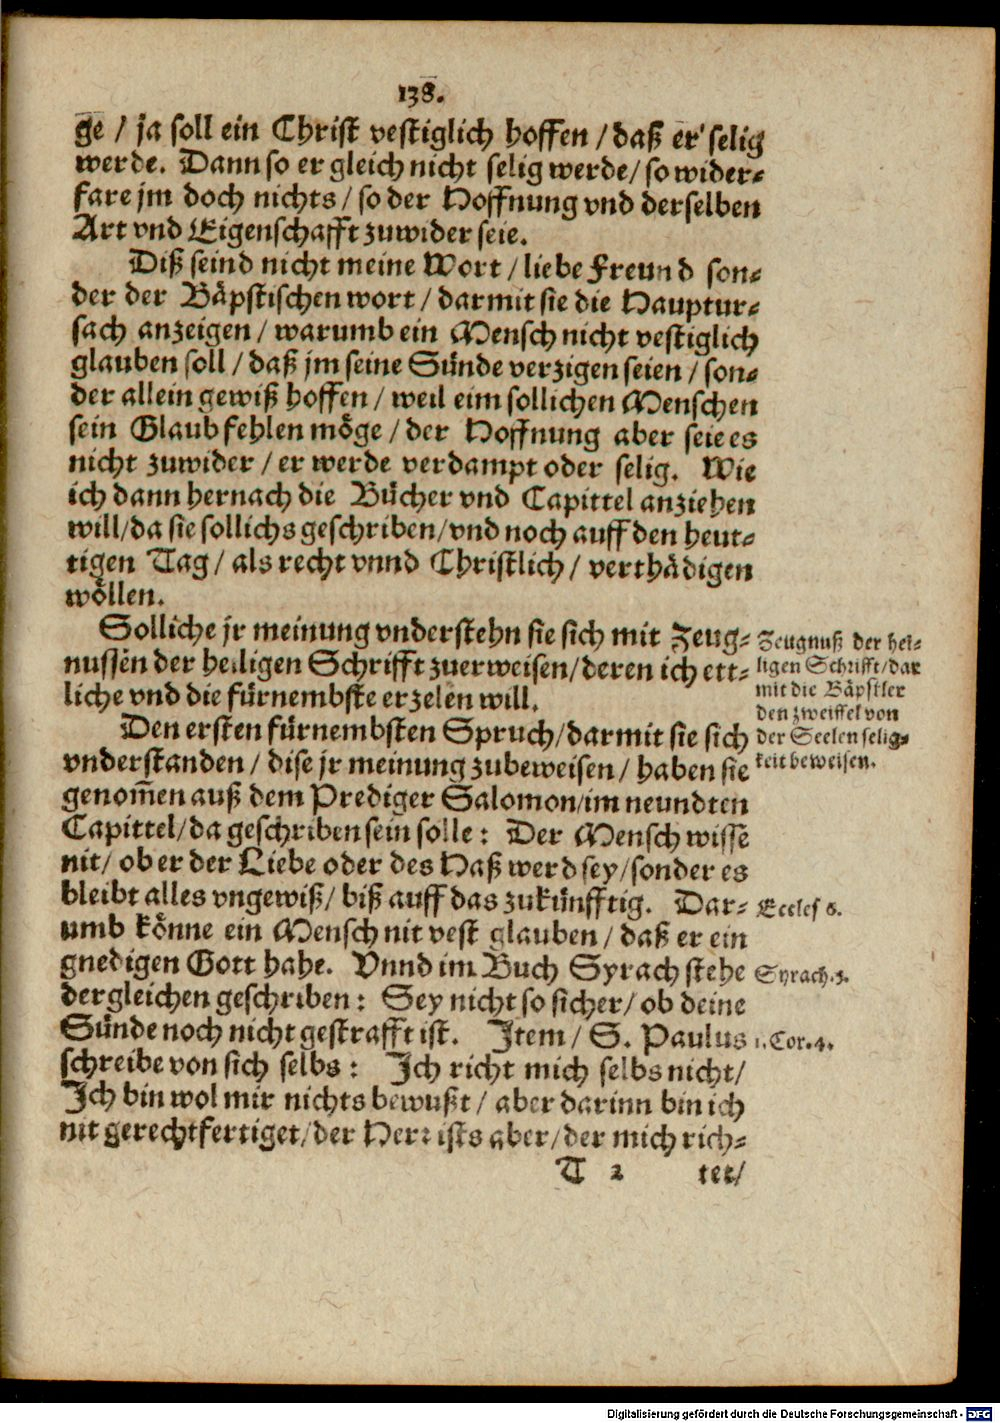 138.
ge / ja soll ein Christ vestiglich hoffen / daß er selig
werde. Dann so er gleich nicht selig werde / so wider-
fare jm doch nichts / so der Hoffnung vnd derselben
Art vnd Eigenschafft zuwider seie.
Diß seind nicht meine Wort / liebe Freund son-
der der Bäpstischen wort / darmit sie die Hauptur-
sach anzeigen / warumb ein Mensch nicht vestiglich
glauben soll / daß jm seine Sünde verzigen seien / son-
der allein gewiß hoffen / weil eim sollichen Menschen
sein Glaub fehlen möge / der Hoffnung aber seie es
nicht zuwider / er werde verdampt oder selig. Wie
ich dann hernach die Bücher vnd Capittel anziehen
will / da sie sollichs geschriben / vnd noch auff den heut-
tigen Tag / als recht vnnd Christlich / verthädigen
wöllen.
Solliche jr meinung vnderstehn sie sich mit Zeug-
nussen der heiligen Schrifft zuerweisen / deren ich ett-
liche vnd die fürnembste erzelen will.
Zeugnuß der hei-
ligen Schrifft / dar
mit die Bäpstler
den zweiffel von
der Seelen selig-
keit beweisen.
Den ersten fürnembsten Spruch / darmit sie sich
vnderstanden / dise jr meinung zubeweisen / haben sie
genom̃en auß dem Prediger Salomon / im neundten
Capittel / da geschriben sein solle : Der Mensch wisse
nit / ob er der Liebe oder des Haß werd sey / sonder es
bleibt alles vngewiß / biß auff das zukünfftig. Dar-
Eccles 6.
umb könne ein Mensch nit vest glauben / daß er ein
gnedigen Gott habe. Vnnd im Buch Syrach stehe
Syrach. 5.
dergleichen geschriben : Sey nicht so sicher / ob deine
Sünde noch nicht gestrafft ist. Item / S. Paulus
1. Cor. 4.
schreibe von sich selbs : Ich richt mich selbs nicht /
Ich bin wol mir nichts bewußt / aber darinn bin ich
nit gerechtfertiget / der Herr ists aber / der mich rich-
T 2 tet /
Digitalisierung gefördert durch die Deutsche Forschungsgemeinschaft - DFG